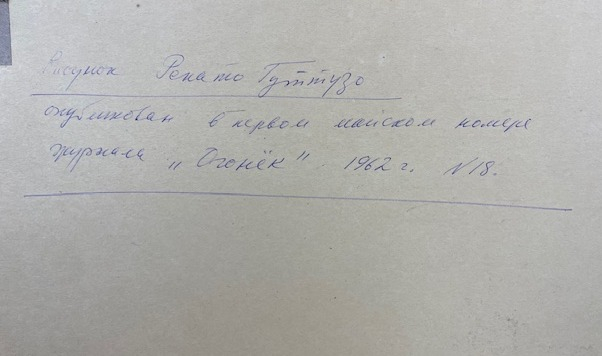 Рисунок Ренато Гуттузо
опубликован в первом майском номере
журнала „Огонёк" 1962 г. N 18.